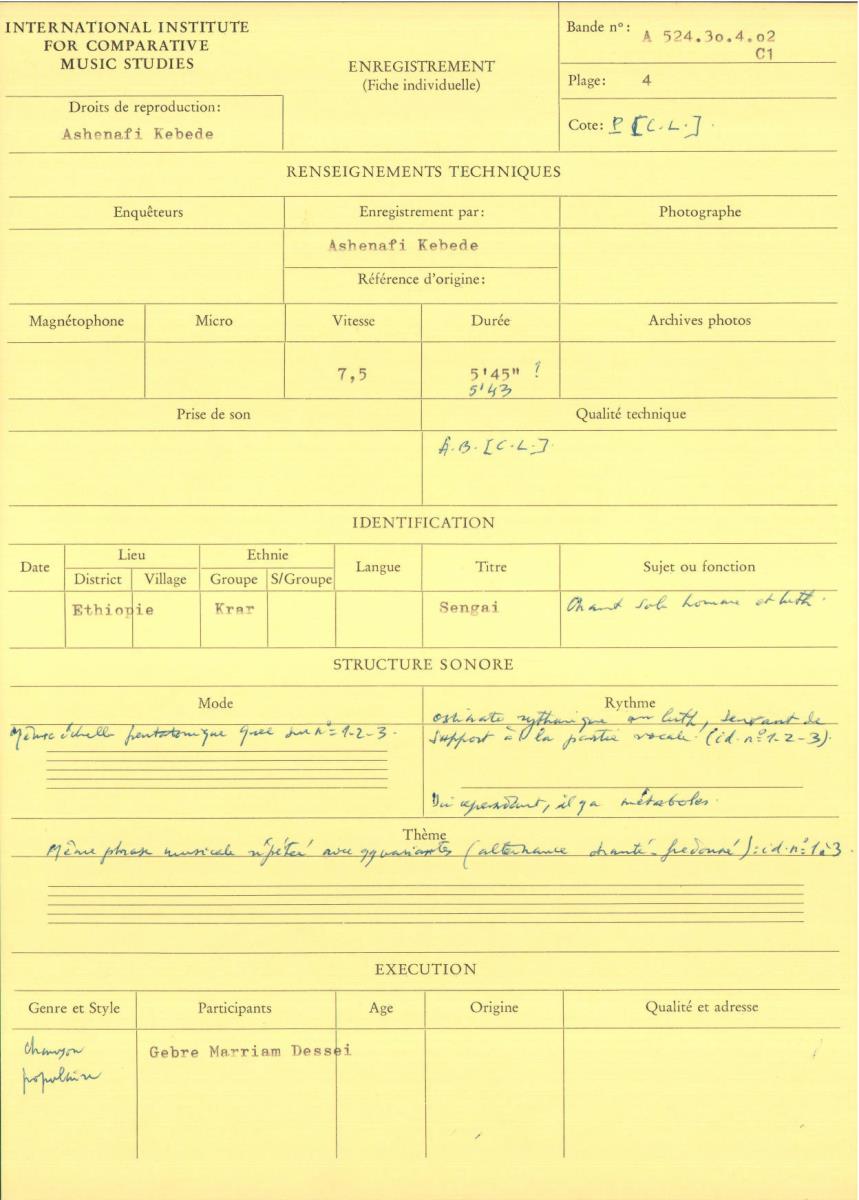 INTERNATIONAL INSTITUTE
FOR COMPARATIVE
MUSIC STUDIES
Droits de reproduction:
Ashenafi Kebede
ENREGISTREMENT
(Fiche individuelle)
Bande nº: A 524.3o.4.o2
C1
Plage: 4
Cote: P [C.L.].
RENSEIGNEMENTS TECHNIQUES
Enquêteurs
Enregistrement par:
Photographe
Ashenafi Kebede
Référence d'origine:
Magnétophone
Micro
Vitesse
Durée
Archives photos
7,5
5'45" ?
5'43
Prise de son
Qualité technique
A.B. [C.L.].
IDENTIFICATION
Date
Lieu
Ethnie
Langue
Titre
Sujet ou fonction
District
Village
Groupe
S/Groupe
Ethiopie
Krar
Sengai
Chant solo homme et luth.
STRUCTURE SONORE
Mode
Rythme
Même échelle pentatonique que sur nº 1-2-3.
ostinato rythmique au luth, servant de
support à la partie vocale. (id. nº 1-2-3).
cependant, il y a métaboles.
Thème
Même phrase musicale répétée avec qq variantes (alternance chanté-fredonné): id. nº 1à3.
EXECUTION
Genre et Style
Participants
Age
Origine
Qualité et adresse
chanson
populaire
Gebre Marriam Dessei